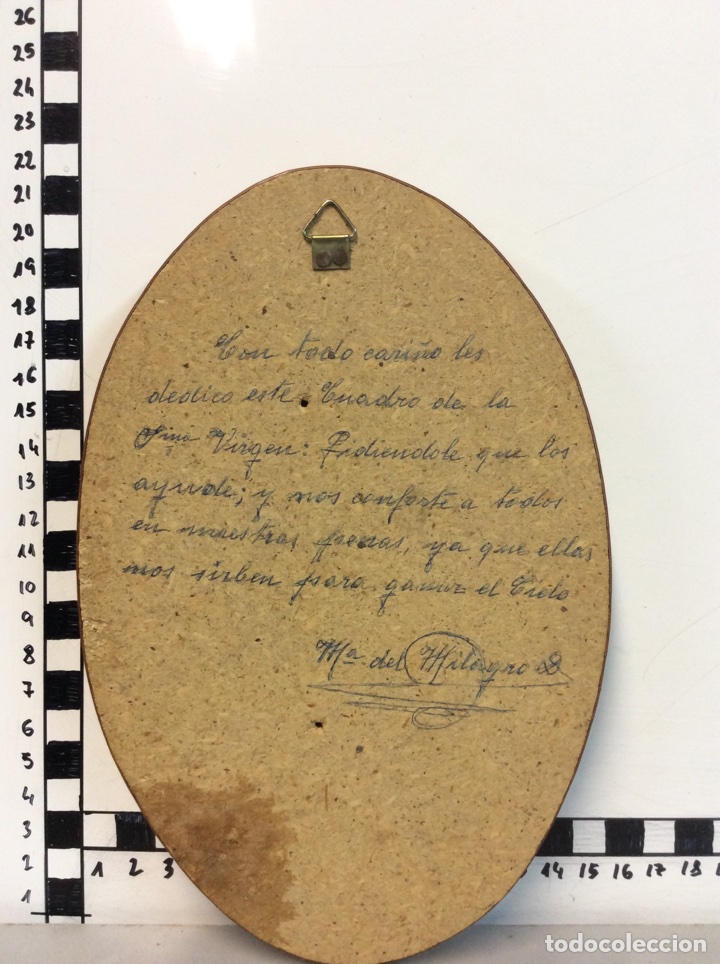 26
25
24
23
22
21
20
19
18
17
16
15
14
13
12
11
10
9
8
7
6
5
4
3
2
1
Con todo cariño les
dedico este Cuadro de la
Sima Virgen: Pidiendole que los
ayude; y nos conforte a todos
en nuestras penas, ya que ellas
nos sirben para ganar el Cielo
Mª del Milagro
1 2 3 14 15 16 17 18
todocoleccion